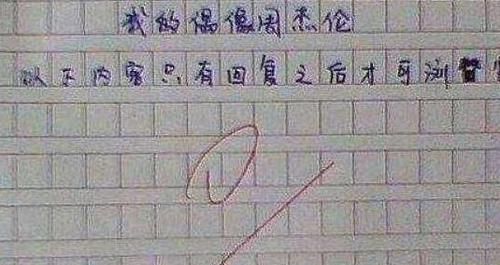 我的偶像周杰伦
以下内容只有回复之后才可浏
0